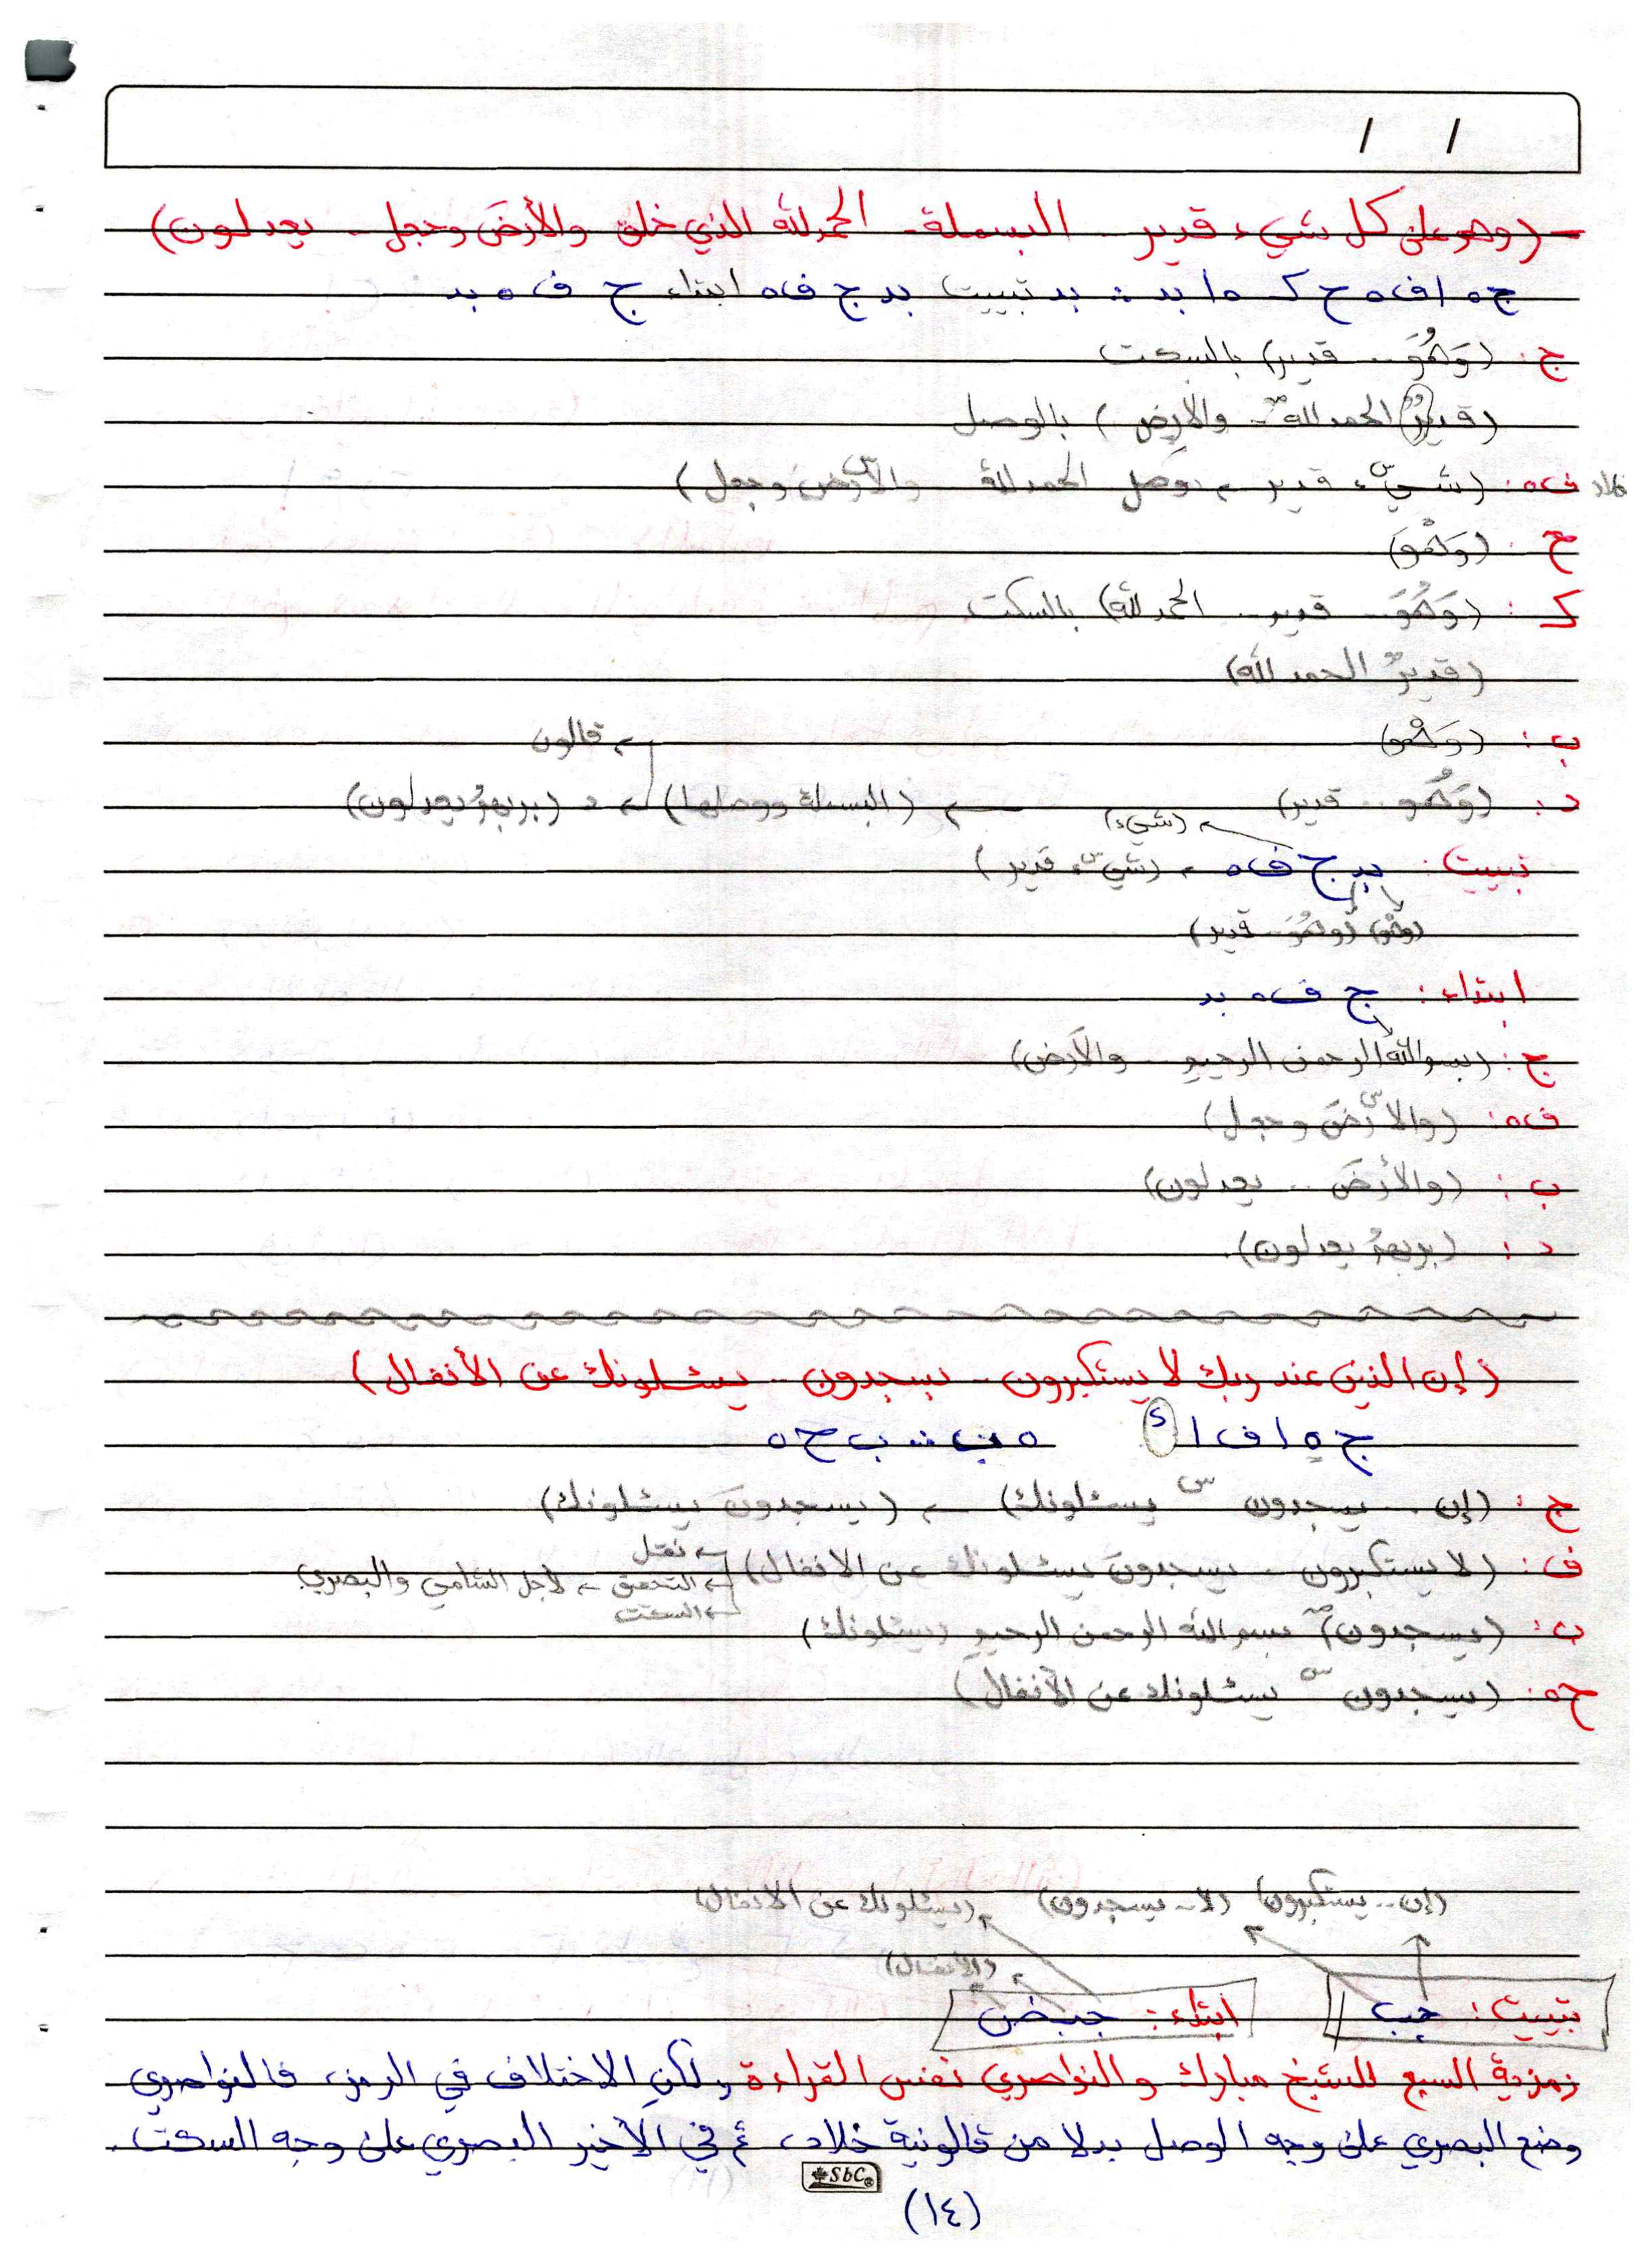 / /
- (وهو على كل شيء قدير .. البسملة .. الحمد لله الذي خلق .. والأرض وجعل .. يعدلون)
ج ه ا ف ه ح ك ه ا بد : بد تبييت بد ج ف ه ابتداء ج ف ه بد
ج : (وَهُوَ .. قدير) بالسكت
(قديرٌ الحمد لله .. والأرض) بالوصل
خلاد ف ه : (شيء قدير ← وصل الحمد لله والأرض وجعل)
ح : (وَهْوَ)
ك : (وَهُوَ .. قدير .. الحمد لله) بالسكت
(قديرٌ الحمد لله)
ب : (وَهْوَ) ← قالون
د : (وَهُوَ .. قدير) ← (البسملة ووصلها) ← د (بربهمُ يعدلون)
(شيء)
تبييت : بد ج ف ه ← (شيء قدير)
(وهْو) (وهُوَ .. قدير)
ابتداء : ج ف ه بد
ج : (بسم الله الرحمن الرحيم .. والأرض)
ف ه : (والأرضَ وجعل)
ب : (والأرضَ .. يعدلون)
د : (بربهمُ يعدلون)
(إن الذين عند ربك لا يستكبرون .. يسجدون .. يسئلونك عن الأنفال)
ج ه ا ف ا ك ه ب : ب ح ه
ج : (إن .. يسجدون س يسئلونك) ← (يسجدونَ يسئلونك)
ف : (لا يستكبرون .. يسجدونَ يسئلونك عن الانفال)
← نقل
← التحقيق ← لأجل الشامي والبصري
← السكت
ب : (يسجدون) بسم الله الرحمن الرحيم (يسئلونك)
ح ه : (يسجدون س يسئلونك عن الأنفال)
(إن .. يستكبرون) (لا .. يسجدون) (يسئلونك عن الانفال)
(الانفال)
تبييت : جب ابتداء : جبض
رمزية السبع للشيخ مبارك والنواصري نفس القراءة ولكن الاختلاف في الرمز، فالنواصري
وضع البصري على وجه الوصل بدلا من قالونية خلاد، ثم في الأخير البصري على وجه السكت.
SbC
(١٤)